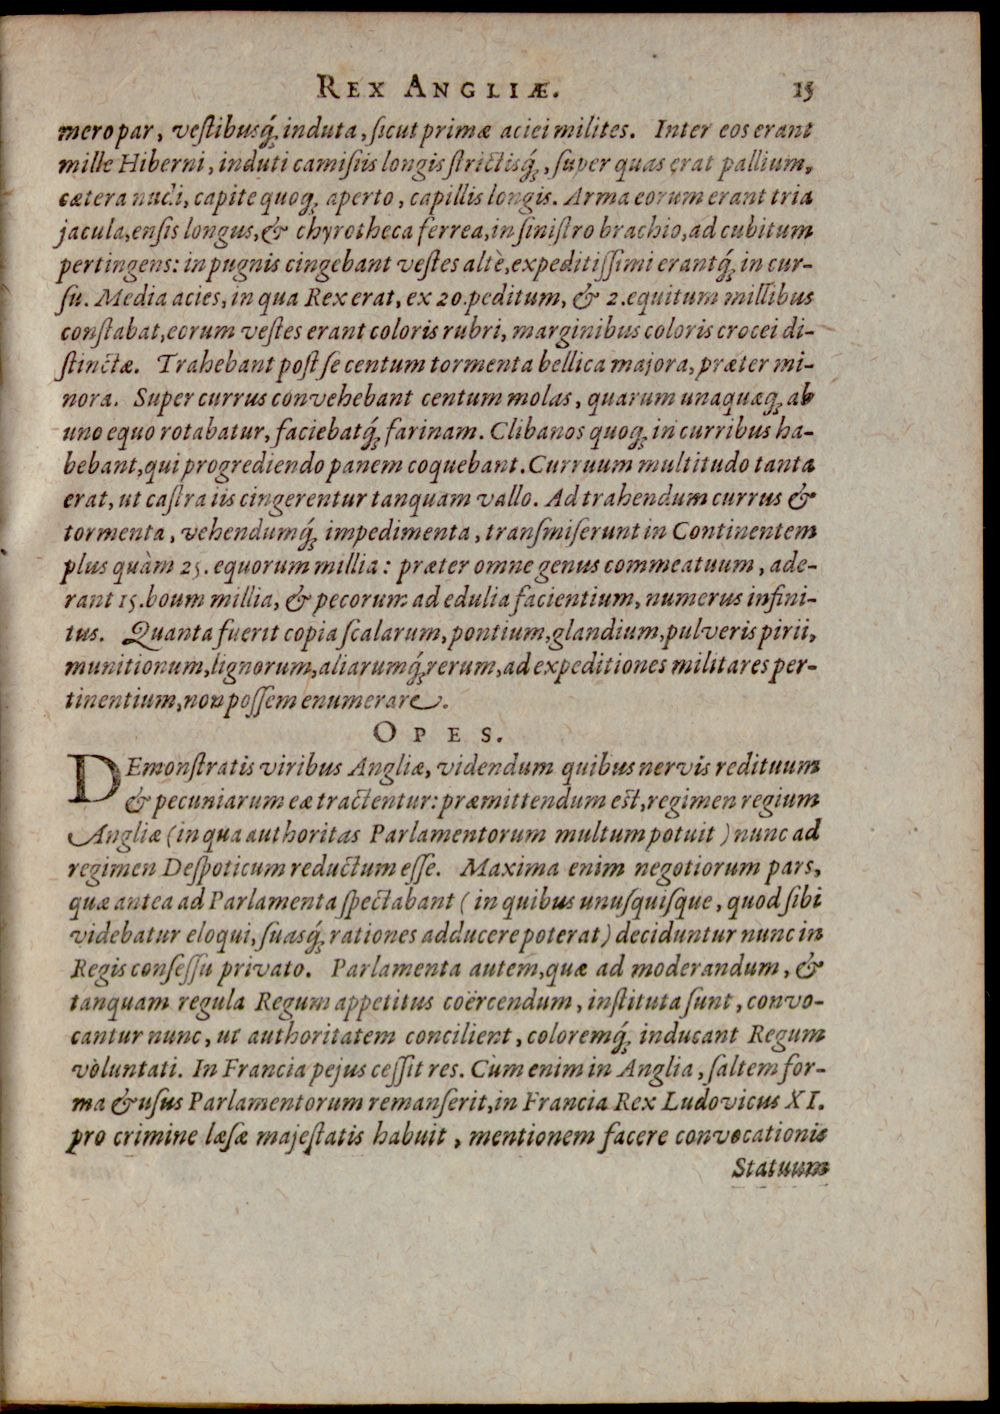 REX ANGLIÆ. 15
mero par, veſtibusq́ꝫ induta, ſicut primæ aciei milites. Inter eos erant
mille Hiberni, induti camiſiis longis ſtrictisq́ꝫ, ſuper quas erat pallium,
cætera nudi, capite quoqꝫ aperto, capillis longis. Arma eorum erant tria
jacula, enſis longus, & chyrotheca ferrea, in ſiniſtro brachio, ad cubitum
pertingens: in pugnis cingebant veſtes altè, expeditiſſimi erantq́ꝫ in cur-
ſu. Media acies, in qua Rex erat, ex 20. peditum, & 2. equitum millibus
conſtabat, eorum veſtes erant coloris rubri, marginibus coloris crocei di-
ſtinctæ. Trahebant poſt ſe centum tormenta bellica majora, præter mi-
nora. Super currus convehebant centum molas, quarum unaquæqꝫ ab
uno equo rotabatur, faciebatq́ꝫ farinam. Clibanos quoqꝫ in curribus ha-
bebant, qui progrediendo panem coquebant. Curruum multitudo tanta
erat, ut caſtra iis cingerentur tanquam vallo. Ad trahendum currus &
tormenta, vehendumq́ꝫ impedimenta, tranſmiſerunt in Continentem
plus quàm 25. equorum millia: præter omne genus commeatuum, ade-
rant 15. boum millia, & pecorum ad edulia facientium, numerus infini-
tus. Quanta fuerit copia ſcalarum, pontium, glandium, pulveris pirii,
munitionum, lignorum, aliarumq́ꝫ rerum, ad expeditiones militares per-
tinentium, non poſſem enumerare.
OPES.
DEmonſtratis viribus Angliæ, videndum quibus nervis redituum
& pecuniarum eæ tractentur: præmittendum eſt, regimen regium
Angliæ (in qua authoritas Parlamentorum multum potuit) nunc ad
regimen Deſpoticum reductum eſſe. Maxima enim negotiorum pars,
quæ antea ad Parlamenta ſpectabant (in quibus unuſquiſque, quod ſibi
videbatur eloqui, ſuasq́ꝫ rationes adducere poterat) deciduntur nunc in
Regis conſeſſu privato. Parlamenta autem, quæ ad moderandum, &
tanquam regula Regum appetitus coërcendum, inſtituta ſunt, convo-
cantur nunc, ut authoritatem concilient, coloremq́ꝫ inducant Regum
voluntati. In Francia pejus ceſſit res. Cùm enim in Anglia, ſaltem for-
ma & uſus Parlamentorum remanſerit, in Francia Rex Ludovicus XI.
pro crimine læſæ majeſtatis habuit, mentionem facere convocationis
Statuum